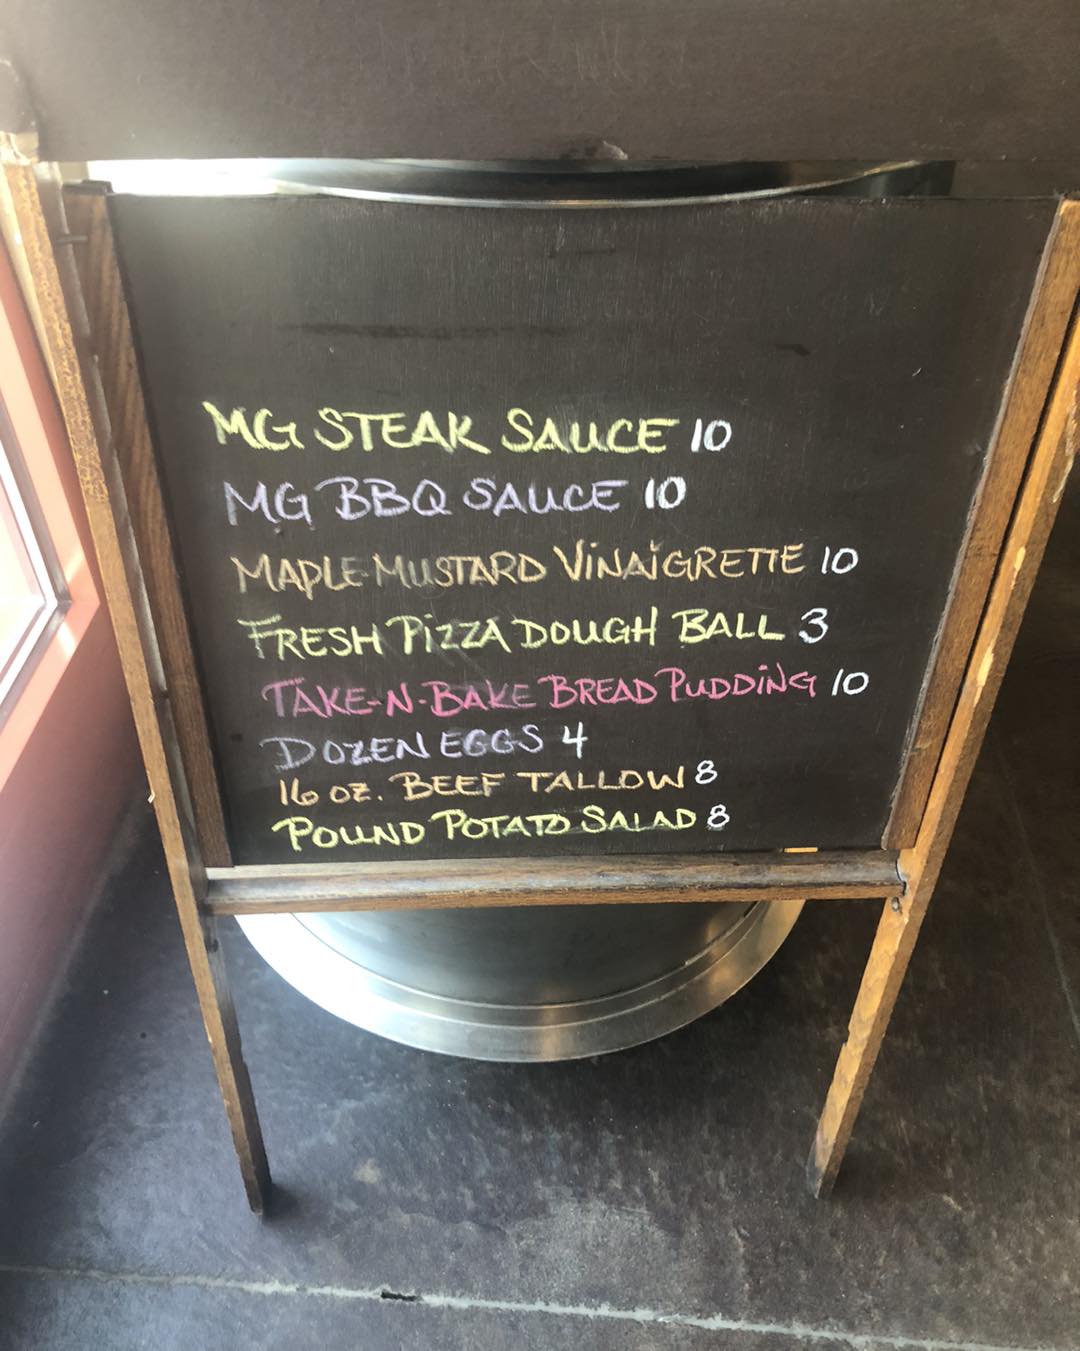 MG STEAK SAUCE 10
MG BBQ SAUCE 10
MAPLE-MUSTARD VINAIGRETTE 10
FRESH PIZZA DOUGH BALL 3
TAKE-N-BAKE BREAD PUDDING 10
DOZEN EGGS 4
16 OZ. BEEF TALLOW 8
POUND POTATO SALAD 8